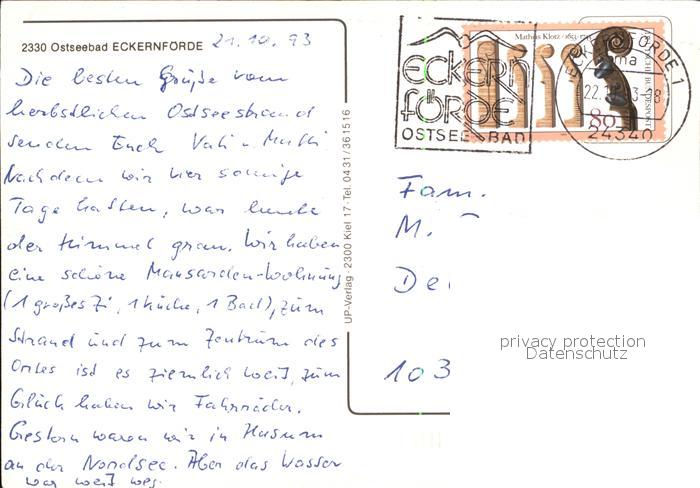 2330 Ostseebad ECKERNFÖRDE 21.10.93
Die besten Grüße vom
herbstlichen Ostseestrand
senden Euch Vati u. Mutti
Nachdem wir hier sonnige
Tage hatten, war heute
der Himmel grau. Wir haben
eine schöne Mansarden-Wohnung
(1 großes Zi, 1 Küche, 1 Bad), zum
Strand und zum Zentrum des
Ortes ist es ziemlich weit, zum
Glück haben wir Fahrräder.
Gestern waren wir in Husum
an der Nordsee. Aber das Wasser
war weit weg.
UP-Verlag · 2300 Kiel 17 · Tel. 0431/361516
ECKERN
FÖRDE
OSTSEEBAD
Mathias Klotz · 1653-1743
DEUTSCHE BUNDESPOST
80
ECKERNFÖRDE 1
24340
Fam.
M.
De
103
privacy protection
Datenschutz